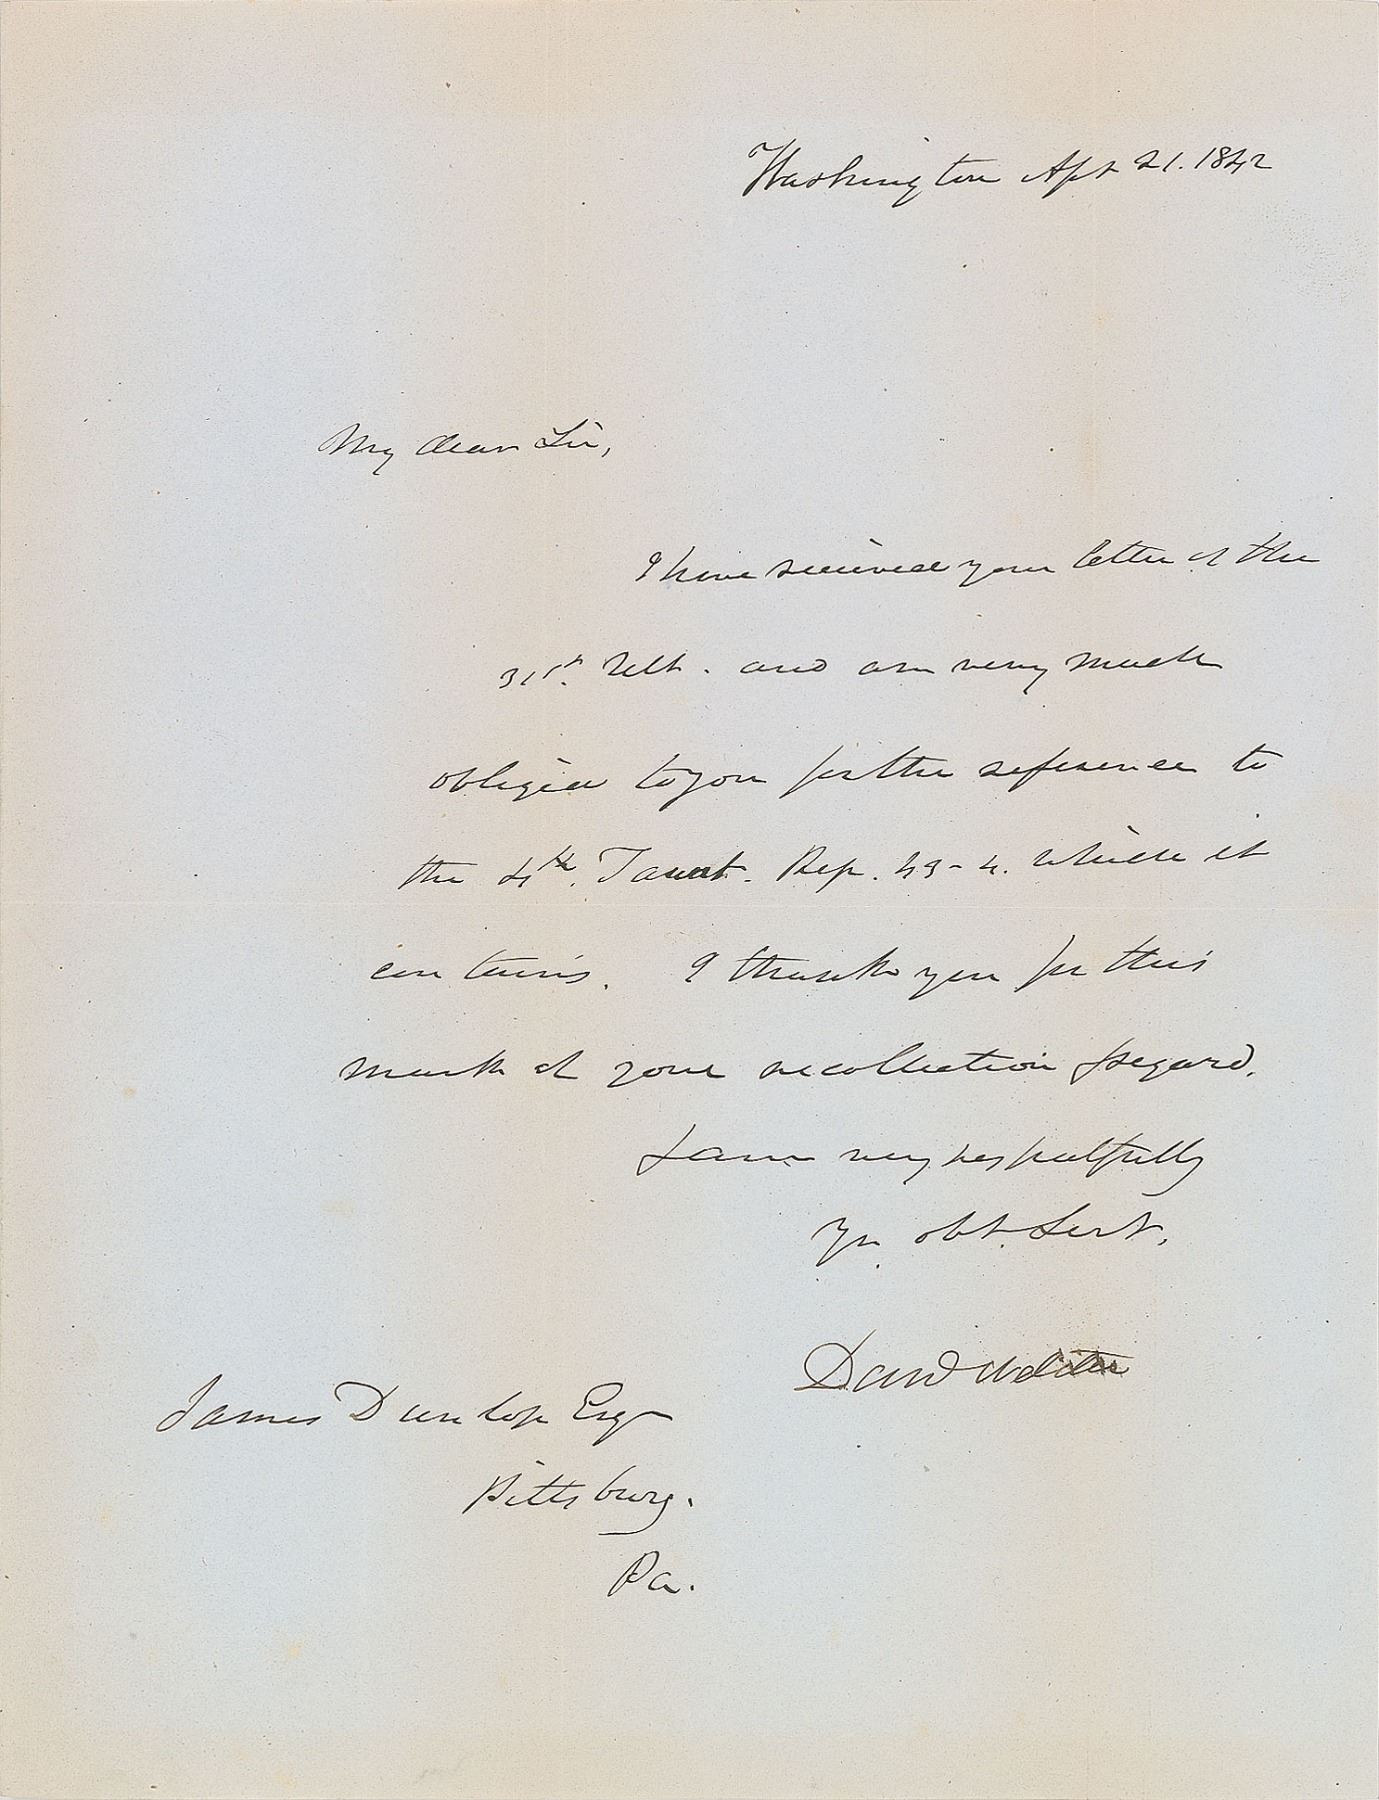 Washington Apl 21. 1842
My dear Sir,
I have received your letter of the
31st. Ult. and am very much
obliged to you for the reference to
the 4th. Taunt. Rep. 43-4. which it
contains. I thank you for this
mark of your recollection & regard.
I am very respectfully
Yr. obt. Servt,
Danl Webster
James Dunlop Esqr
Pittsburg.
Pa.